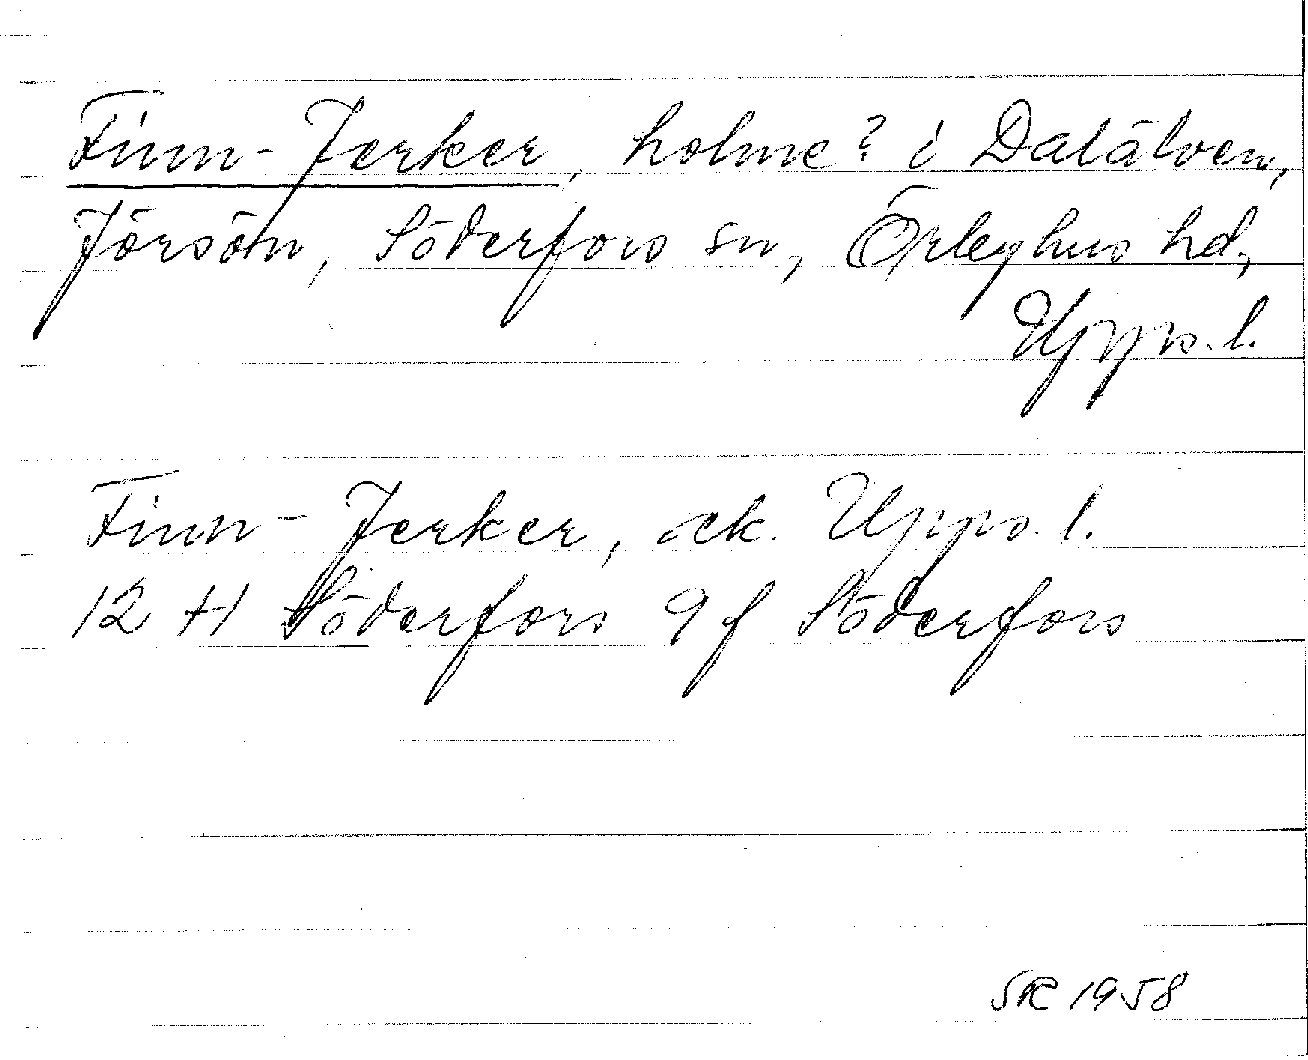 Finn-Jerker, holme? i Dalälven,
Jörsön, Söderfors sn, Örbyhus hd,
Upps. l.
Finn-Jerker, ek. Upps. l.
12 H Söderfors 9 f Söderfors
SR 1958